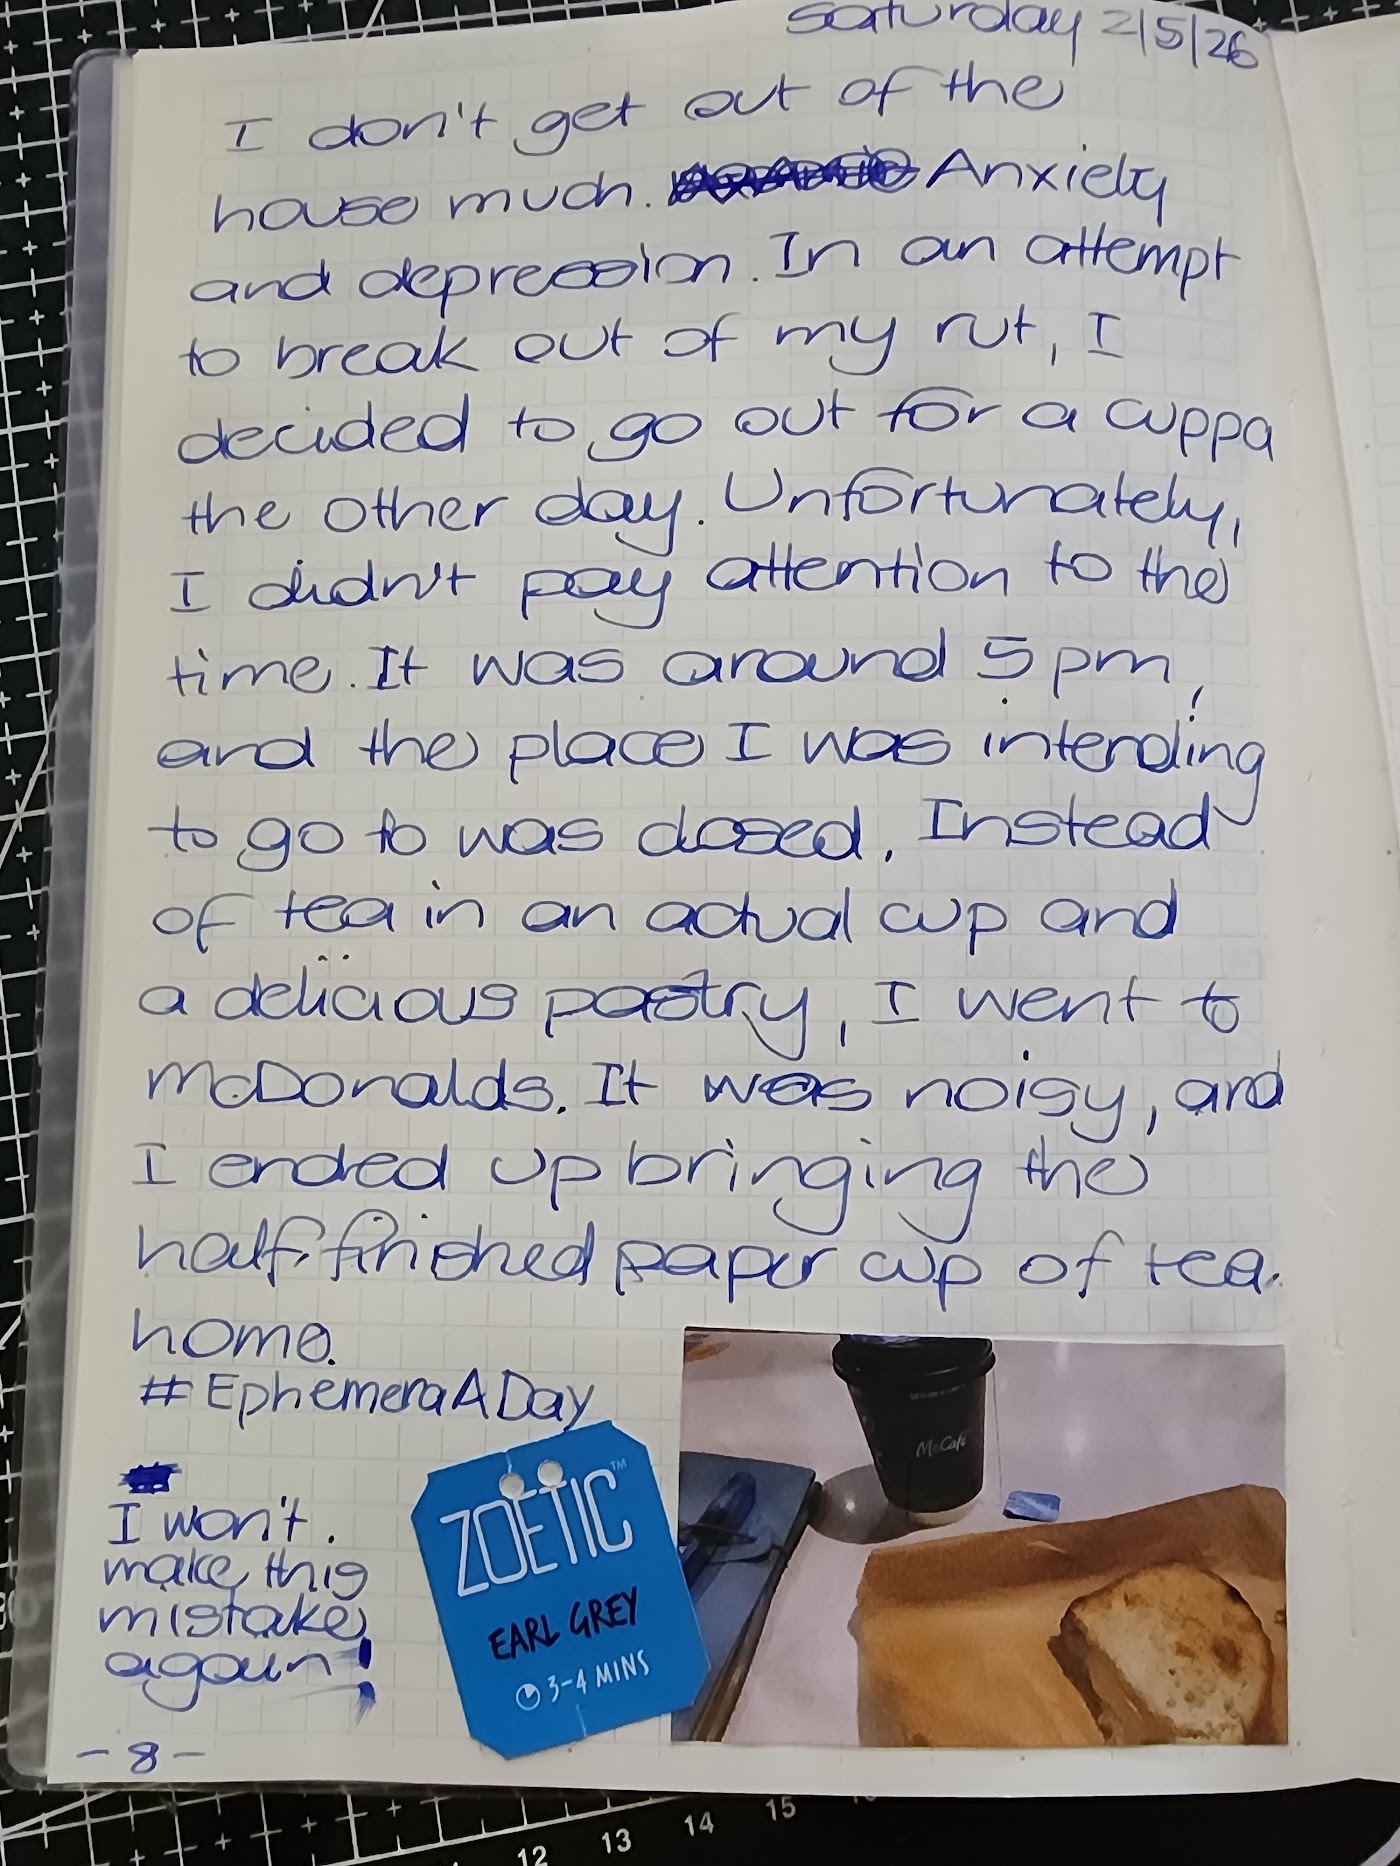 Saturday 2/5/26
I don't get out of the
house much. Anxiety
and depression. In an attempt
to break out of my rut, I
decided to go out for a cuppa
the other day. Unfortunately,
I didn't pay attention to the
time. It was around 5pm,
and the place I was intending
to go to was closed. Instead
of tea in an actual cup and
a delicious pastry, I went to
McDonalds. It was noisy, and
I ended up bringing the
half-finished paper cup of tea.
home.
#EphemeraADay
I won't.
make this
mistake
again!
- 8 -
ZOETIC™
EARL GREY
3-4 MINS
McCafé
12 13 14 15